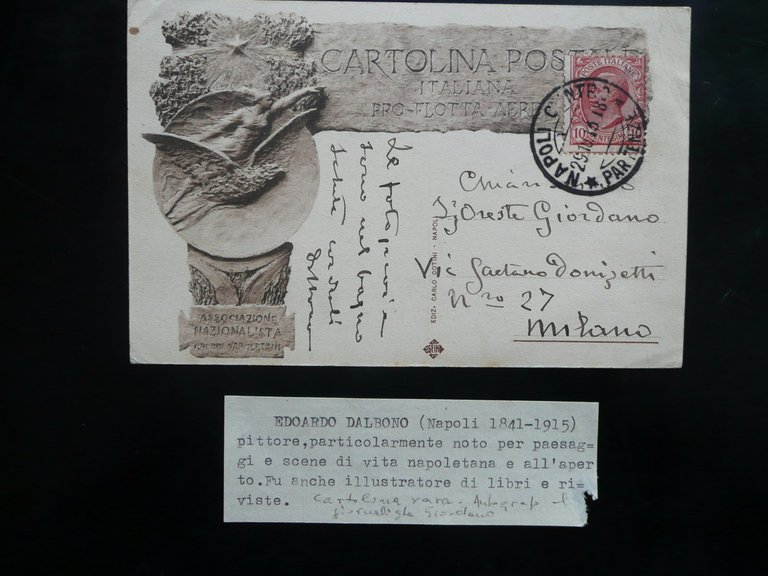 CARTOLINA POSTALE
ITALIANA
PRO-FLOTTA AEREA
POSTE ITALIANE
10
NAPOLI CENTRO
PARTENZE
ASSOCIAZIONE
NAZIONALISTA
GRUPPI NAPOLETANI
Le fotografie
sono nel bagno
Salute cordiali
Dalbono
EDIZ. CARLO - NAPOLI
Sig Oreste Giordano
Via Gaetano Donizetti
Nro 27
Milano
EDOARDO DALBONO (Napoli 1841-1915)
pittore,particolarmente noto per paesag=
gi e scene di vita napoletana e all'aper
to.Fu anche illustratore di libri e ri=
viste. Cartolina rara. Autograf al
giornalista Giordano